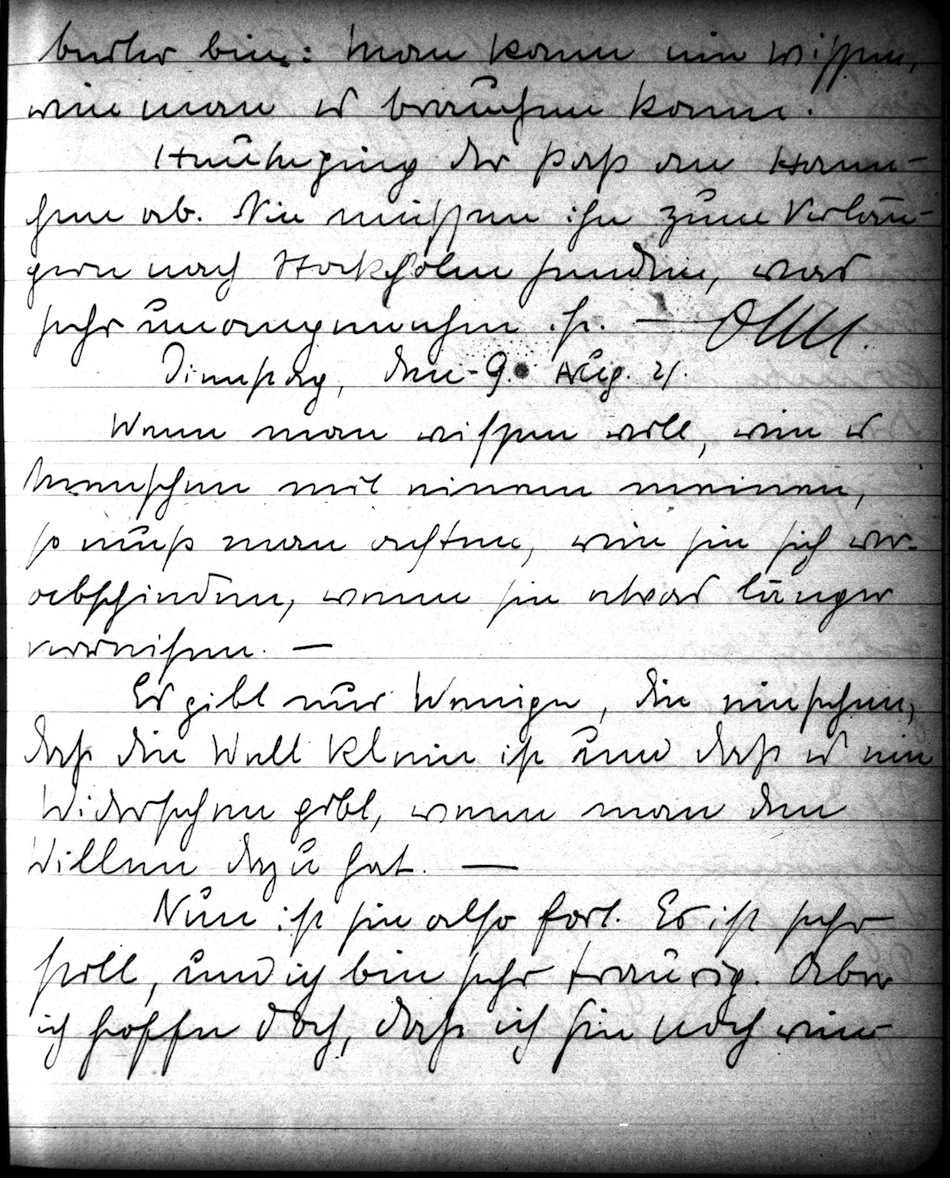 bin: Man kann nie wissen,
wie man es brauchen kann.
Heute ging der Paß an Hann-
chen ab. Sie müssen ihn zum Verlän-
gern nach Stockholm senden, was
sehr unangenehm ist. —
Dienstag, den 9. Aug. 21.
Wenn man wissen will, wie es
Menschen mit einem meinen,
so muß man achten, wie sie sich ver-
abschieden, wenn sie etwas länger
verreisen. —
Es gibt nur Wenige, die einsehen,
daß die Welt klein ist und daß es ein
Wiedersehen gibt, wenn man den
Willen dazu hat. —
Nun ist sie also fort. Es ist sehr
still, und ich bin sehr traurig. Aber
ich hoffe doch, daß ich sie noch wie-